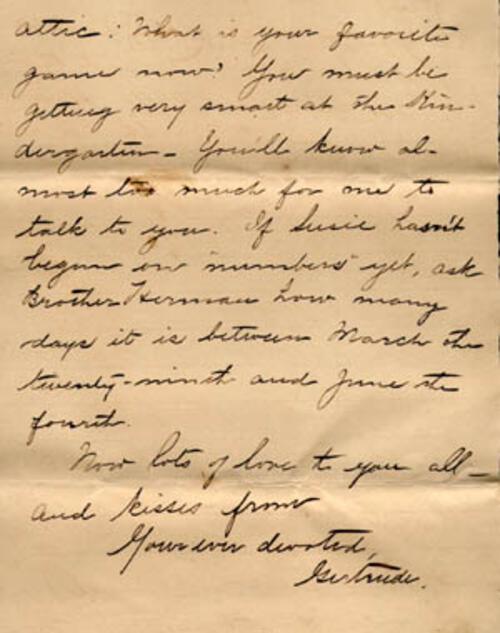 attic? What is your favorite
game now? You must be
getting very smart at the Kin-
dergarten - You'll know al-
most too much for me to
talk to you. If Susie hasn't
begun on "numbers" yet, ask
Brother Herman how many
days it is between March the
twenty-ninth and June the
fourth.
Now lots of love to you all -
and kisses from
Your ever devoted,
Gertrude.